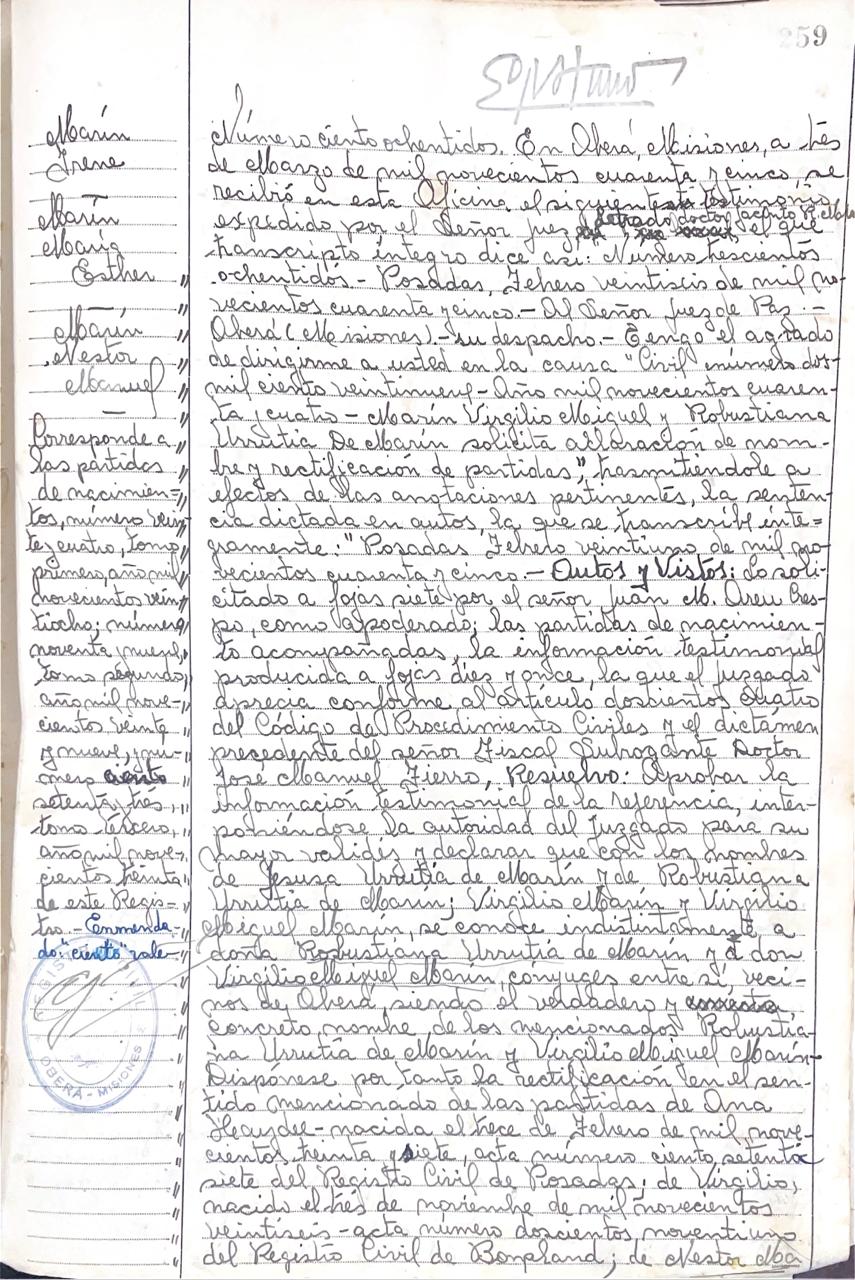 259
Marín
Irene
Marín
María
Esther
Marín
Nestor
Manuel
Corresponde a
las partidas
de nacimien=
tos, número vein
te y cuatro, tomo
primero, año mil
novecientos vein
tiocho; número
noventa y nueve,
tomo segundo,
año mil nove-
cientos veinte
y nueve, y nu-
mero ciento
setenta y tres,
tomo tercero,
año mil nove-
cientos treinta
de este Regis-
tro.- Enmenda-
do: "ciento" vale-
OBERÁ - MISIONES
Número ciento ochentidos. En Oberá, Misiones, a trés
de Marzo de mil novecientos cuarenta y cinco, se
recibió en esta Oficina el siguiente testimonio
expedido por el Señor Juez letrado doctor Jacinto R. el que
transcripto íntegro dice asi: Número trescientos
ochentidós - Posadas, Febrero veintiseis de mil no-
vecientos cuarenta y cinco.- Al Señor Juez de Paz.-
Oberá (Misiones).- su despacho.- Tengo el agrado
de dirigirme a usted en la causa "Civil número dos-
mil ciento veintinueve - Año mil novecientos cuaren-
ta y cuatro - Marín Virgilio Miguel y Robustiana
Urrutia De Marín solicita aclaración de nom-
bre y rectificación de partidas", trasmitiéndole a
efectos de las anotaciones pertinentes, la senten-
cia dictada en autos, la que se transcribe ínte=
gramente: "Posadas Febrero veintiuno de mil no-
vecientos cuarenta y cinco.- Autos y Vistos: Lo soli-
citado a fojas siete por el señor Juan M. Areu Cres-
po, como apoderado; las partidas de nacimien-
to acompañadas, la información testimonial
producida a fojas diez y once, la que el juzgado
aprecia conforme al artículo doscientos cuatro
del Código de Procedimiento Civiles y el dictámen
precedente del señor Fiscal Subrogante Doctor
José Manuel Fierro, Resuelvo: Aprobar la
información testimonial de la referencia, inter-
poniéndose la autoridad del Juzgado para su
mayor validés y declarar que con los nombres
de Jesusa Urrutia de Marín y de Robustiana
Urrutia de Marín; Virgilio Marín y Virgilio
Miguel Marín, se conoce indistintamente a
doña Robustiana Urrutia de Marín y a don
Virgilio Miguel Marín, conyuges entre sí, veci-
nos de Oberá, siendo el verdadero y
concreto nombre de los mencionados Robustia-
na Urrutia de Marín y Virgilio Miguel Marín-
Dispónese por tanto la rectificación en el sen-
tido mencionado de las partidas de Ana
Haydee - nacida el trece de Febrero de mil nove-
cientos treinta y siete, acta número ciento setenta
siete del Registro Civil de Posadas; de Virgilio,
nacido el trés de noviembre de mil novecientos
veintiseis - acta número doscientos noventiuno
del Registro Civil de Bonpland; de Nestor Ma